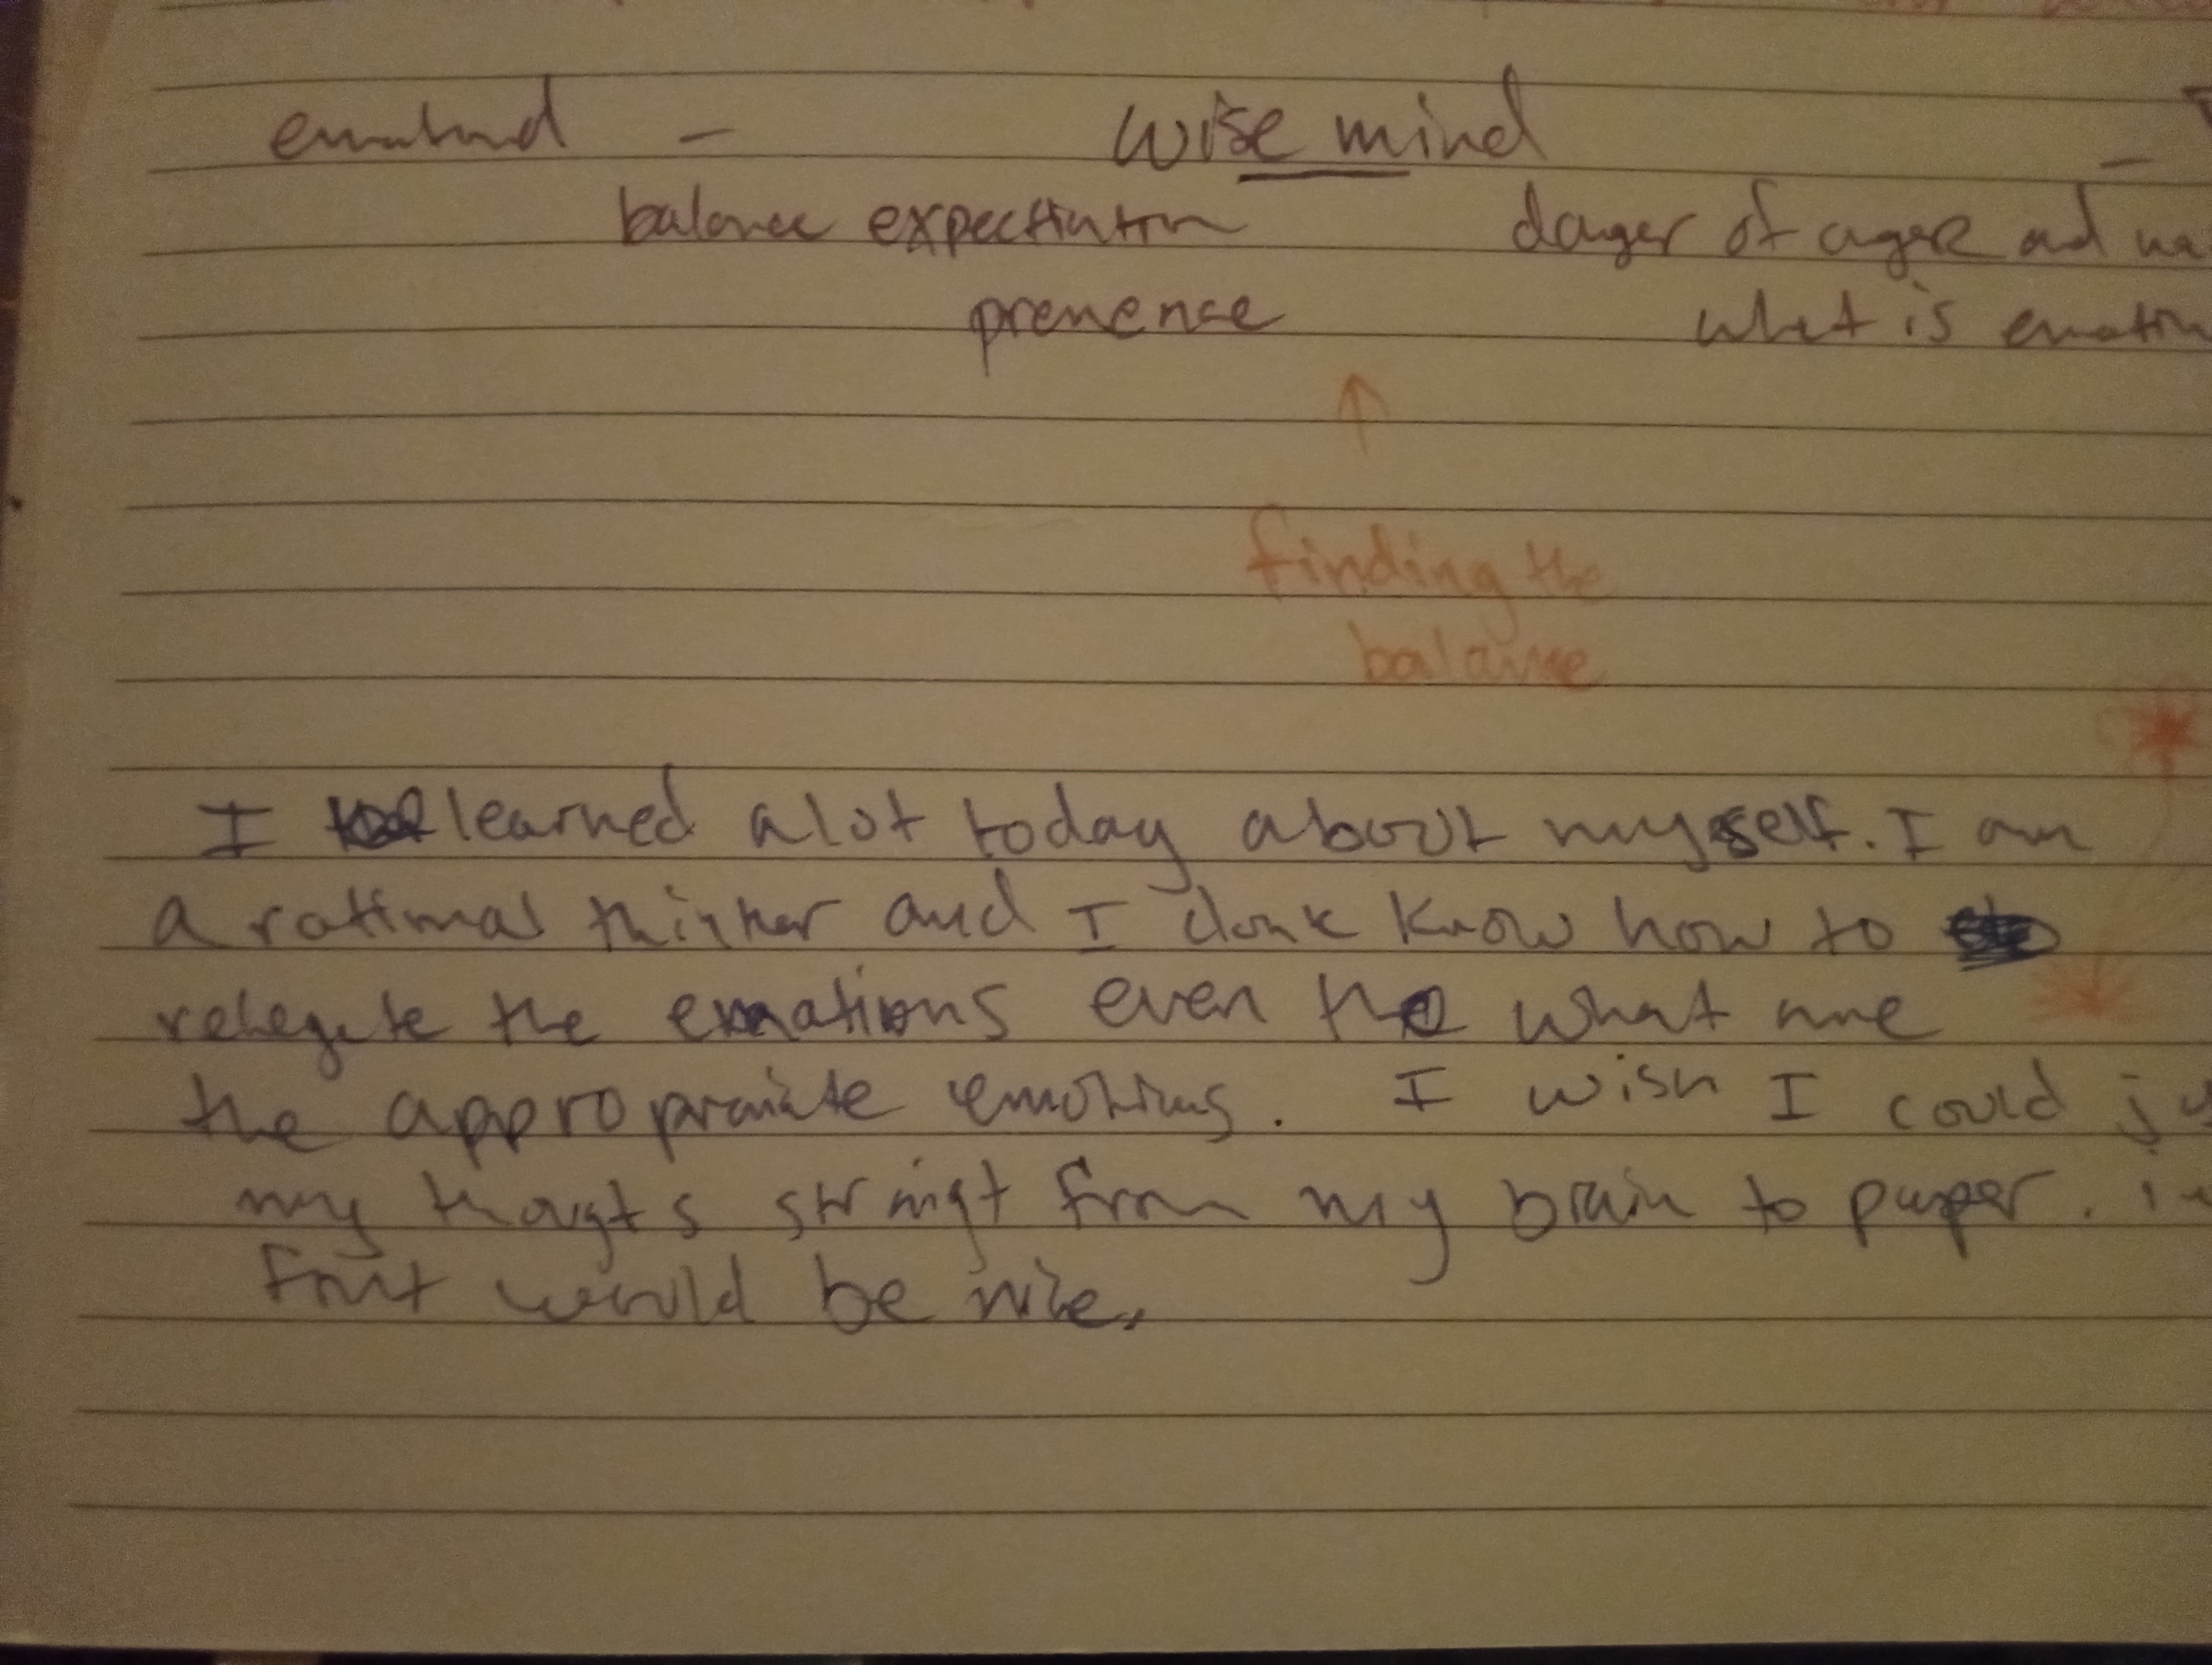 wise mind
balance dager of ager and
what is
finding the
balance
I learned alot today about myself. I am
a rational thinker and I dont know how to
relegate the emotions even tho what are
the appropriate emotions. I wish I could
my thougts straigt from my brain to paper.
would be nice.